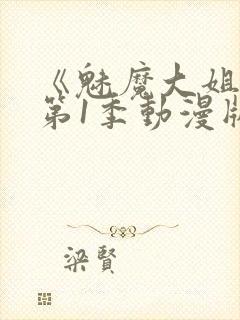 《魅魔大姐
第1季動漫版
梁賢